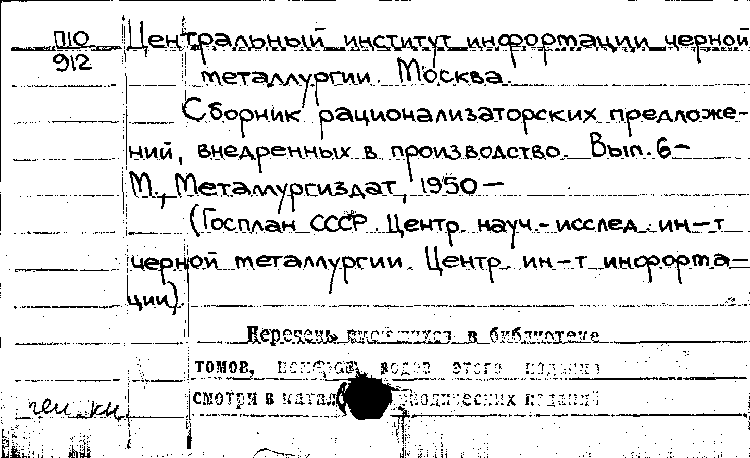 П10
912
Центральный институт информации черной
металлургии. Москва.
Сборник рационализаторских предложе-
ний, внедренных в производство. Вып. 6-
М., Металлургиздат, 1950-
(Госплан СССР. Центр. науч.-исслед. ин-т
черной металлургии. Центр. ин-т информа-
ции).
Перечень имеющихся в библиотеке
томов, номеров, годов этого издания
смотри в периодических изданий